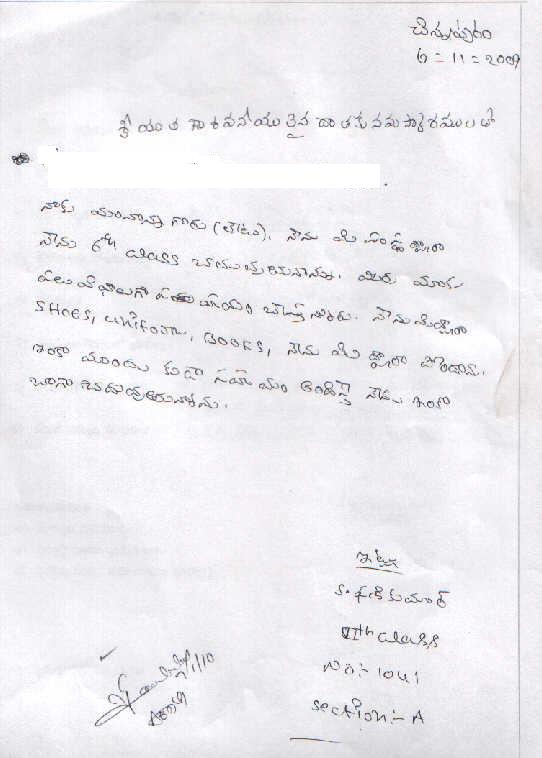 చిన్నపురం
6 = 11 = 2009
శ్రీయుత గౌరవనీయులైన దాతకు నమస్కారములతో
నాకు నాన్న గారు (లేడు). నేను మీ సంస్థ ద్వారా
నేను 6th class చదువుతున్నాను. మీరు మాకు
పలు విధాలుగా సహాయం చేస్తున్నారు. నేను మీ ద్వారా
SHOES, Uniform, BOOKS, నేను మీ ద్వారా పొందాను.
ఇంకా ముందు కూడా సహాయం అందిస్తే నేను ఇంకా
బాగా చదువుకుంటాను.
ఇట్లు
K. ఫణికుమార్
VIth class
No:- 1041
Section:- A